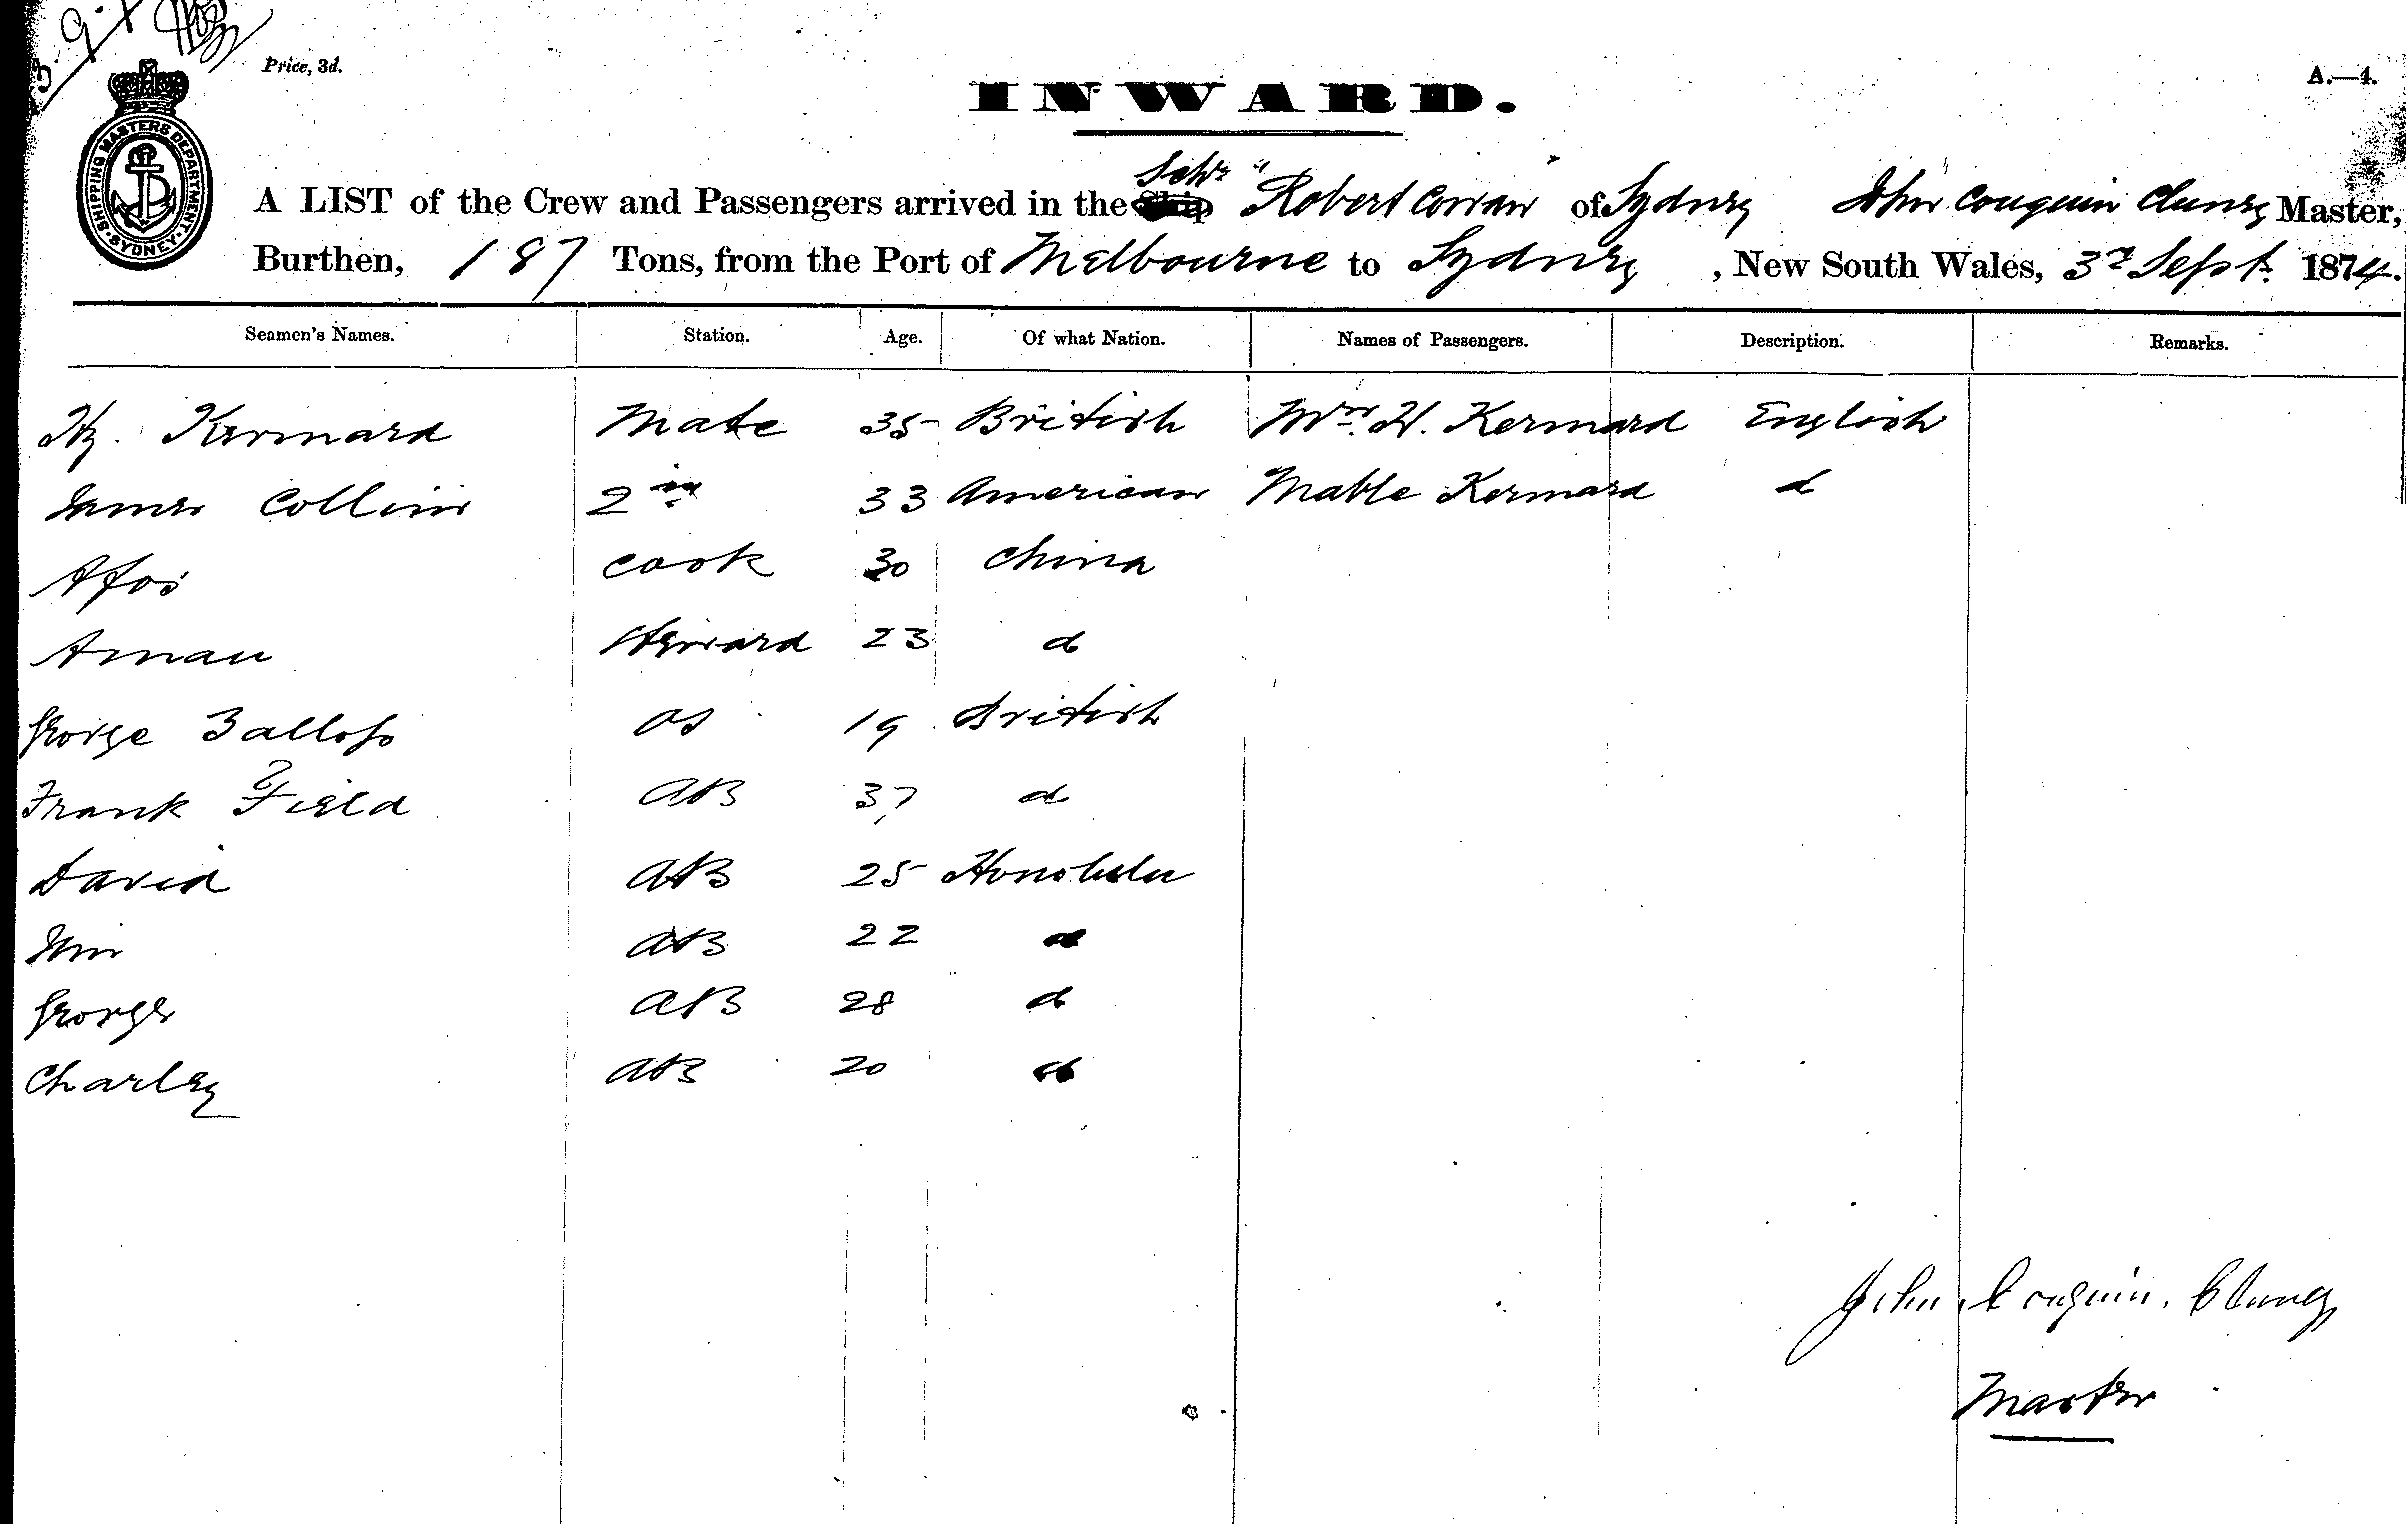 Price, 3d.
A.—4.
INWARD.
SHIPPING MASTERS DEPARTMENT SYDNEY
Schr
A LIST of the Crew and Passengers arrived in the Ship "Robert Cowan" of Sydney John Conguin Cluney Master,
Burthen, 187 Tons, from the Port of Melbourne to Sydney, New South Wales, 3rd Sept. 1874.
Seamen's Names. Station. Age. Of what Nation. Names of Passengers. Description. Remarks.
Hy. Kermard Mate 35 British Mrs. H. Kermard English
James Collins 2nd 33 American Mable Kermard do
Afoi Cook 30 China
Amau Steward 23 do
George OS 19 British
Frank Field AB 37 do
David AB 25 Honolulu
Jim AB 22 do
George AB 28 do
Charley AB 20 do
John Conguin Cluney
Master